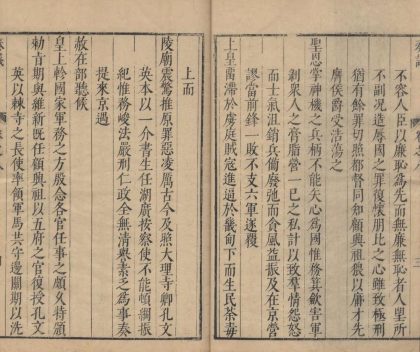 不容人臣以廉恥為先而無廉無恥者人望所
不副況造辱國之罪復懷朋比之心雖致極刑
猶有餘辜切照都督同知顧興祖猥以庸才先
膺侯爵受浩蕩之
聖恩掌神機之兵柄不能矢心為國惟務箕歛害軍
剥衆人之膏脂營一己之私計以致羣情怨怒
而士氣沮銷兵備廢弛而食風益振及在京營
謬當前鋒一敗不支六軍遂覆
上皇留滯於虜庭賊寇進逼於畿甸下而生民荼毒
上而
陵廟震驚推原罪惡凌厲古今及照大理寺卿孔文
英本以一介書生任湖廣按察使不能頓綱振
紀惟務峻法嚴刑仁政全無清譽素乏為事奏
提來京遇
赦在部聽候
皇上軫國家軍務之方殷念各官任事之頗久特頒
勑旨期與維新既任顧興祖以五府之官復授孔文
英以棘寺之長使率領軍馬共守邊關期以洗